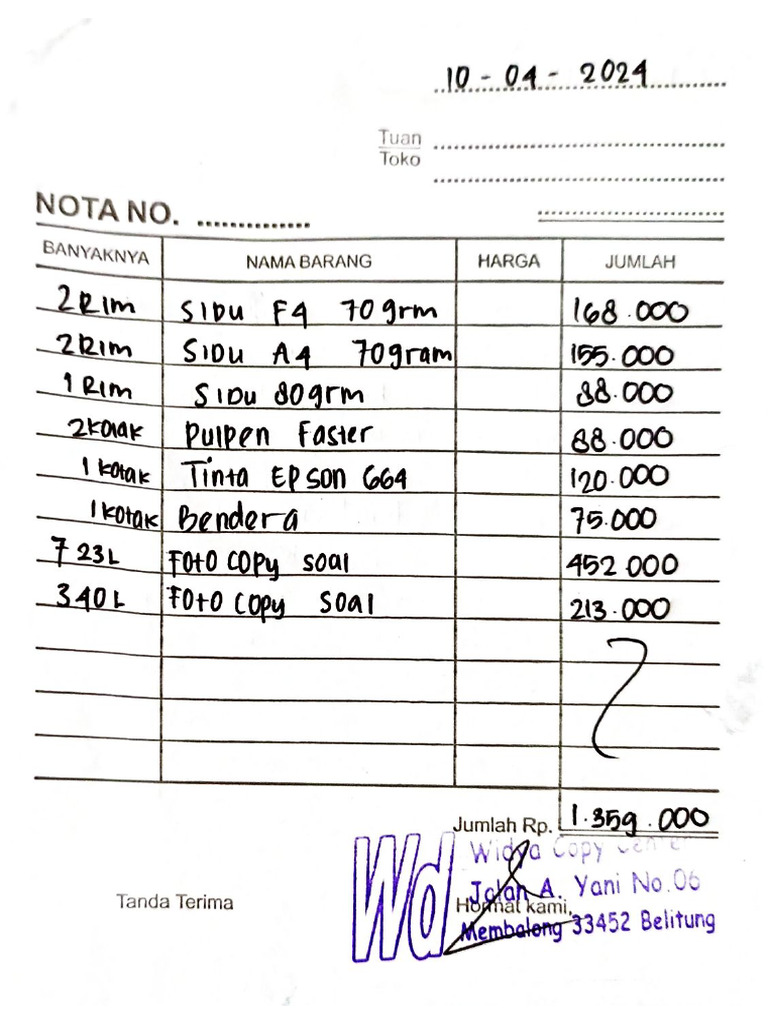 10 - 04 - 2024
Tuan
Toko
NOTA NO.
BANYAKNYA NAMA BARANG HARGA JUMLAH
2 Rim SIDU F4 70 grm 168.000
2 Rim SIDU A4 70gram 155.000
1 Rim SIDU 80grm 88.000
2 kotak Pulpen Faster 88.000
1 kotak Tinta EPSON 664 120.000
1 kotak Bendera 75.000
723 L Foto copy soal 452 000
340 L Foto copy soal 213.000
Jumlah Rp. 1.359.000
Widya Copy Center
Jalan A. Yani No.06
Tanda Terima Hormat kami,
Membalong 33452 Belitung
Wd